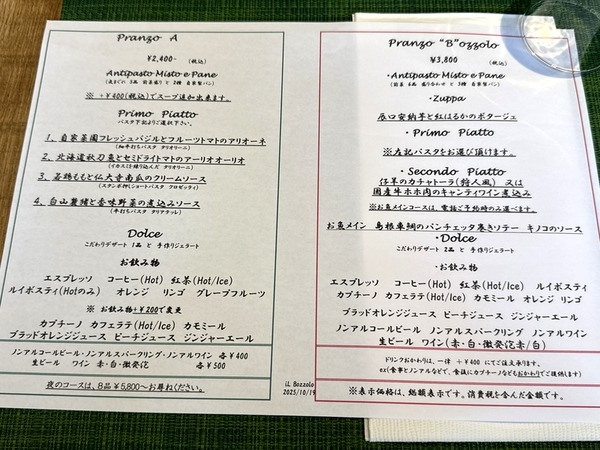 Pranzo A
¥2,400- (税込)
Antipasto Misto e Pane
(気まぐれ 3品 前菜盛り と 2種 自家製パン)
※ +¥400(税込)でスープ追加出来ます。
Primo Piatto
パスタ下記よりご選択下さい。
1、自家菜園フレッシュバジルとフルーツトマトのアリオーネ
2、北海道秋刀魚とセミドライトマトのアーリオオーリオ
(イカスミを練り込んだ タリオリーニ)
3、若鶏ももと仏大寺南瓜のクリームソース
(スタンプ押しショートパスタ クロゼッティ)
4、白山麓猪と香味野菜の煮込みソース
(平打ちパスタ タリアテッレ)
Dolce
こだわりデザート 1品 と 手作りジェラート
お飲み物
エスプレッソ コーヒー(Hot) 紅茶(Hot/Ice)
ルイボスティ(Hotのみ) オレンジ リンゴ グレープフルーツ
※ お飲み物+¥200で変更
カプチーノ カフェラテ(Hot/Ice) カモミール
ブラッドオレンジジュース ピーチジュース ジンジャーエール
ノンアルコールビール・ノンアルスパークリング・ノンアルワイン 各¥400
生ビール ワイン 赤・白・微発泡 各¥500
夜のコースは、8品¥5,800〜お尋ねください。
iL Bozzolo
2025/10/19
Pranzo "B"ozzolo
¥3,800 (税込)
・Antipasto Misto e Pane
(前菜 6品 盛り合わせ と 3種 自家製パン)
・Zuppa
辰口安納芋と紅はるかのポタージュ
・Primo Piatto
※左記パスタをお選び頂けます。
・Secondo Piatto
仔羊のカチャトーラ(狩人風) 又は
国産牛ホホ肉のキャンティワイン煮込み
※お魚メインコースは、電話ご予約時のみ選べます。
お魚メイン 島根車鯛のパンチェッタ巻きソテー キノコのソース
・Dolce
こだわりデザート 2品 と 手作りジェラート
・お飲み物
エスプレッソ コーヒー(Hot) 紅茶(Hot/Ice) ルイボスティ(Hot)
カプチーノ カフェラテ(Hot/Ice) カモミール オレンジ リンゴ
ブラッドオレンジジュース ピーチジュース ジンジャーエール
ノンアルコールビール ノンアルスパークリング ノンアルワイン
生ビール ワイン(赤・白・微発泡 赤/白)
ドリンクおかわりは、一律 +¥400 にてご注文承ります。
ex(食事とノンアルなどで、食後にカプチーノなどもおかわりでご提供します)
※表示価格は、総額表示です。消費税を含んだ金額です。